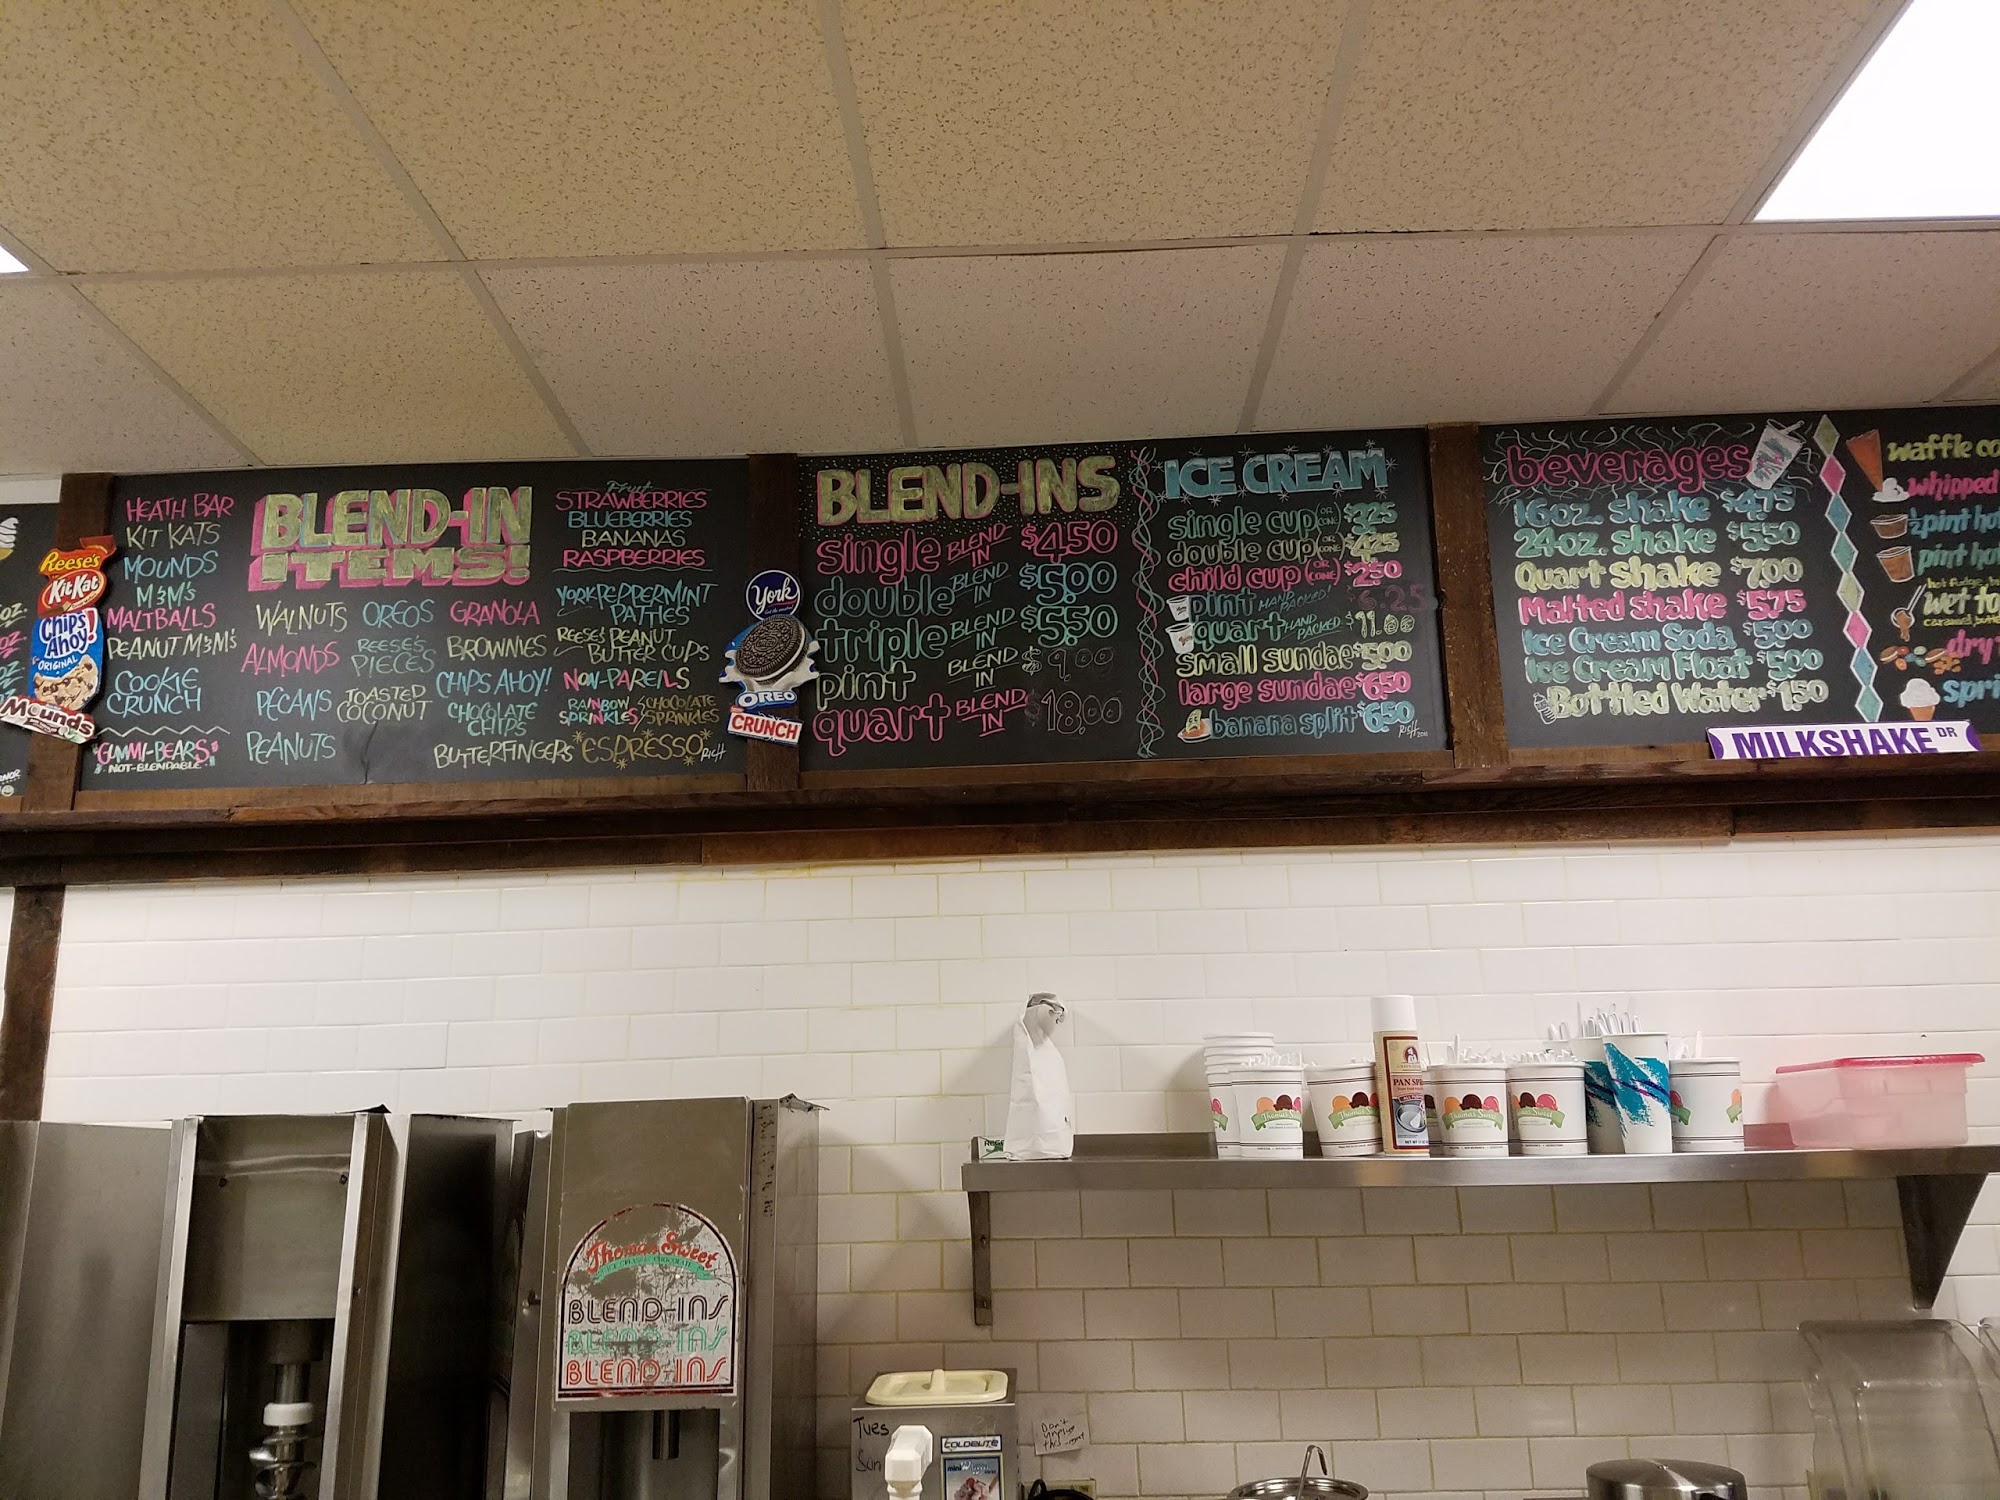 Reese's
KitKat
Chips
Ahoy!
ORIGINAL
Mounds
HEATH BAR
KIT KATS
MOUNDS
M&M's
MALTBALLS
PEANUT M&M's
COOKIE
CRUNCH
"GUMMI-BEARS"
NOT-BLENDABLE
BLEND-IN
ITEMS!
WALNUTS
ALMONDS
PECANS
PEANUTS
OREOS
REESE'S
PIECES
TOASTED
COCONUT
GRANOLA
BROWNIES
CHIPS AHOY!
CHOCOLATE
CHIPS
BUTTERFINGERS
Fruit
STRAWBERRIES
BLUEBERRIES
BANANAS
RASPBERRIES
YORK PEPPERMINT
PATTIES
REESE'S PEANUT
BUTTER CUPS
NON-PAREILS
RAINBOW
SPRINKLES
CHOCOLATE
SPRINKLES
*ESPRESSO*
RICH
York
OREO
CRUNCH
BLEND-INS
single BLEND IN $4.50
double BLEND IN $5.00
triple BLEND IN $5.50
pint BLEND IN $9.00
quart BLEND IN $18.00
ICE CREAM
single cup OR CONE $3.25
double cup OR CONE $4.25
child cup (OR CONE) $2.50
pint HAND PACKED! $6.25
quart HAND PACKED $11.00
small sundae $5.00
large sundae $6.50
banana split $6.50
RICH 2011
beverages
16oz. shake $4.75
24oz. shake $5.50
Quart shake $7.00
Malted shake $5.75
Ice Cream Soda $5.00
Ice Cream Float $5.00
Bottled Water $1.50
MILKSHAKE DR
waffle co
whipped
½ pint ho
pint ho
hot fudge
wet to
caramel
dry
spri
PAN SPR
Thomas Sweet
Thomas Sweet
Thomas Sweet
Thomas Sweet
Thomas Sweet
ICE CREAM & CHOCOLATE
BLEND-INS
BLEND-INS
BLEND-INS
Tues
Sun
COLDELITE
mini
Don't
unplug
this